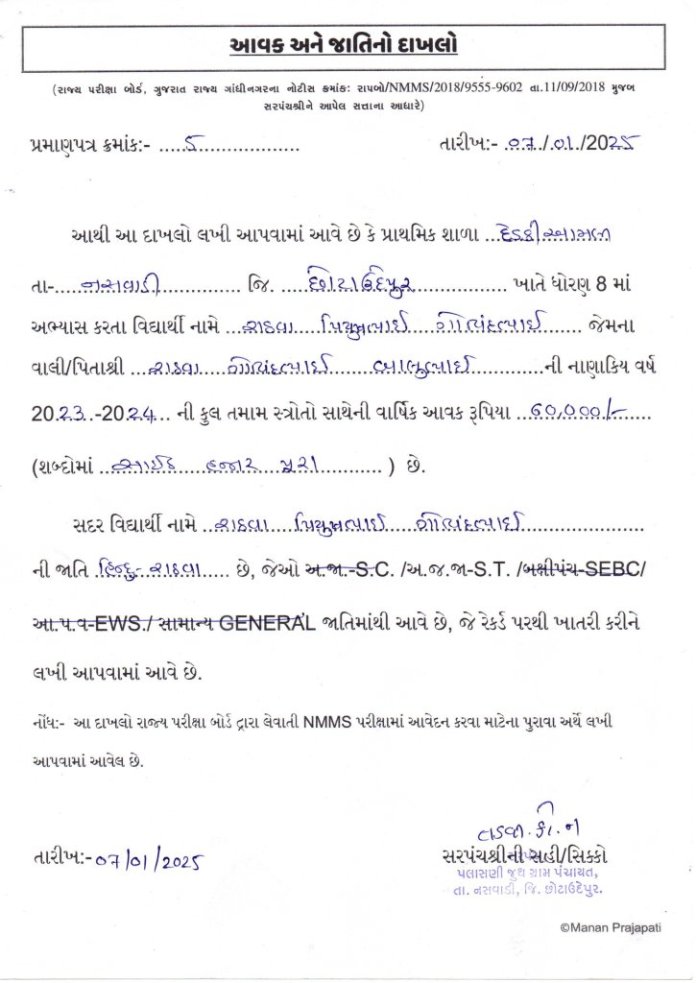 આવક અને જાતિનો દાખલો
(રાજ્ય પરીક્ષા બોર્ડ, ગુજરાત રાજ્ય ગાંધીનગરના નોટીસ ક્રમાંક: રાપબો/NMMS/2018/9555-9602 તા.11/09/2018 મુજબ
સરપંચશ્રીને આપેલ સત્તાના આધારે)
પ્રમાણપત્ર ક્રમાંક:- .....5................... તારીખ:- .૦૭./.૦1./2025
આથી આ દાખલો લખી આપવામાં આવે છે કે પ્રાથમિક શાળા ...દેડકીઆમળ
તા-....નસવાડી............... જિ. ....છોટાઉદેપુર................. ખાતે ધોરણ 8 માં
અભ્યાસ કરતા વિદ્યાર્થી નામે ...રાઠવા....પિયુષભાઈ....ગોવિંદભાઈ...... જેમના
વાલી/પિતાશ્રી ...રાઠવા....ગોવિંદભાઈ.......બાબુભાઈ...........ની નાણાકિય વર્ષ
20.23.-2024... ની કુલ તમામ સ્ત્રોતો સાથેની વાર્ષિક આવક રૂપિયા ...૬૦,૦૦૦/-......
(શબ્દોમાં ...સાઈઠ....હજાર....પૂરા............ ) છે.
સદર વિદ્યાર્થી નામે ..રાઠવા....પિયુષભાઈ.....ગોવિંદભાઈ.....................
ની જાતિ .હિન્દુ-રાઠવા..... છે, જેઓ અ.જા.-S.C. /અ.જ.જા-S.T. /બક્ષીપંચ-SEBC/
આ.પ.વ-EWS./ સામાન્ય GENERAL જાતિમાંથી આવે છે, જે રેકર્ડ પરથી ખાતરી કરીને
લખી આપવામાં આવે છે.
નોંધ:- આ દાખલો રાજ્ય પરીક્ષા બોર્ડ દ્વારા લેવાતી NMMS પરીક્ષામાં આવેદન કરવા માટેના પુરાવા અર્થે લખી
આપવામાં આવેલ છે.
તારીખ:-૦7/૦1/2025
સરપંચશ્રીની સહી/સિક્કો
પલાસણી જુથ ગ્રામ પંચાયત,
તા. નસવાડી, જિ. છોટાઉદેપુર.
©Manan Prajapati